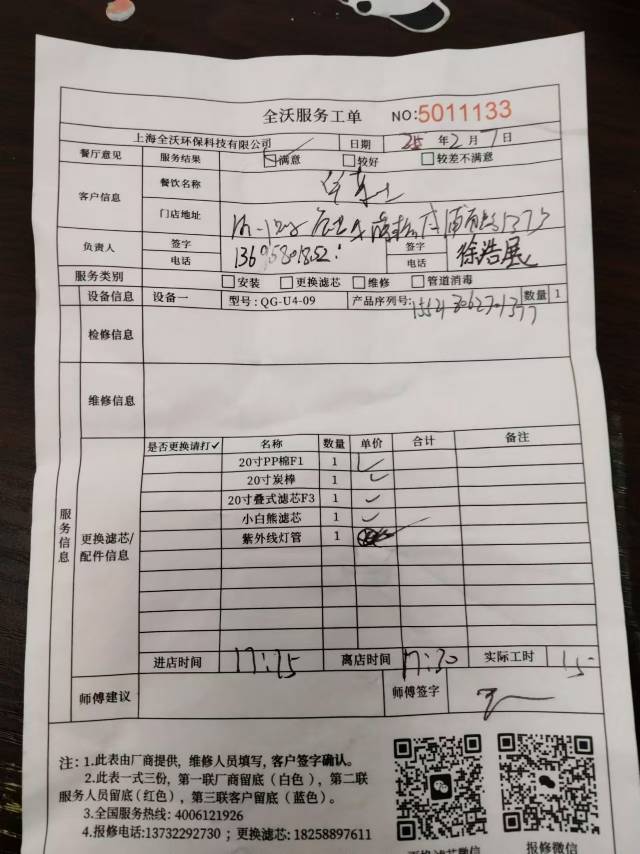 全沃服务工单 NO:5011133
上海全沃环保科技有限公司 日期 25 年 2 月 7 日
餐厅意见 服务结果 满意 较好 较差不满意
客户信息 餐饮名称
门店地址
负责人 签字 签字 徐浩展
电话 电话
服务类别 安装 更换滤芯 维修 管道消毒
设备信息 设备一 型号: QG-U4-09 产品序列号: 数量 1
检修信息
维修信息
服务信息
更换滤芯/
配件信息
是否更换请打✓ 名称 数量 单价 合计 备注
20寸PP棉F1 1 ✓
20寸炭棒 1 ✓
20寸叠式滤芯F3 1 ✓
小白熊滤芯 1 ✓
紫外线灯管 1
进店时间 17:15 离店时间 17:30 实际工时 15
师傅建议 师傅签字
注: 1.此表由厂商提供, 维修人员填写, 客户签字确认。
2.此表一式三份, 第一联厂商留底 (白色) , 第二联
服务人员留底(红色) , 第三联客户留底 (蓝色) 。
3.全国服务热线: 4006121926
4.报修电话:13732292730 ; 更换滤芯: 18258897611
更换滤芯微信 报修微信